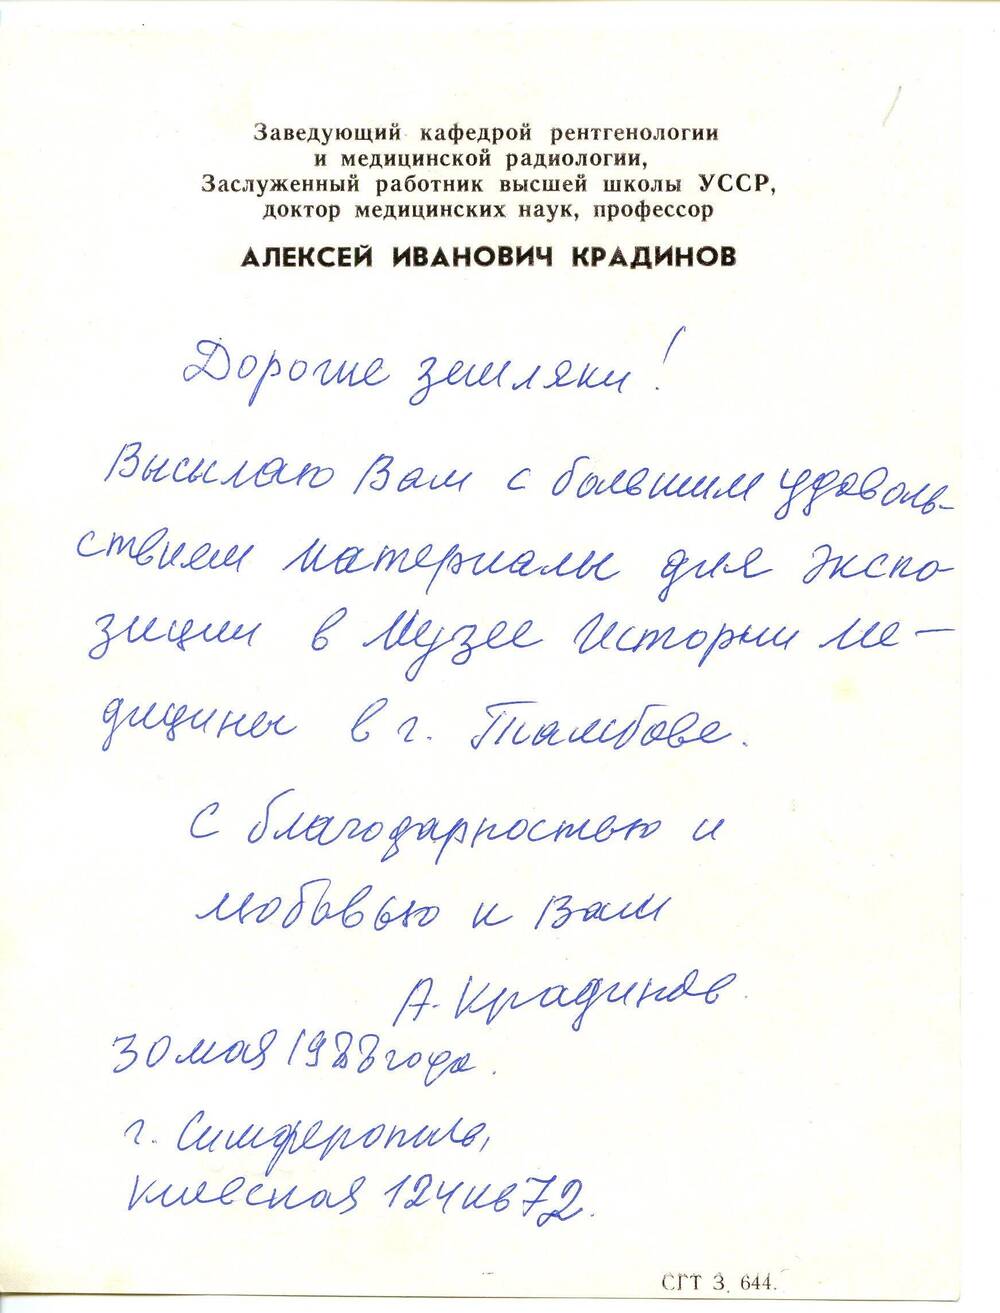 Заведующий кафедрой рентгенологии
и медицинской радиологии,
Заслуженный работник высшей школы УССР,
доктор медицинских наук, профессор
АЛЕКСЕЙ ИВАНОВИЧ КРАДИНОВ
Дорогие земляки!
Высылаю Вам с большим удоволь-
ствием материалы для экспо-
зиции в Музее Истории ме-
дицины в г. Тамбове.
С благодарностью и
любовью к Вам
А. Крадинов.
30 мая 1988 года.
г. Симферополь,
Киевская 124 кв 72.
СГТ З. 644.